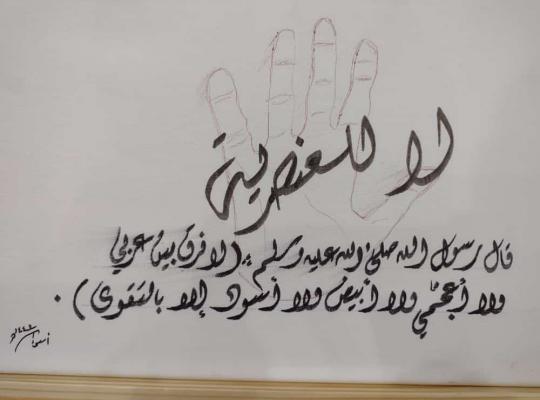 لا للعنصرية
قال رسول الله صلى الله عليه وسلم :(لا فرق بين عربي
ولا أعجمي ولا أبيض ولا أسود إلا بالتقوى) .